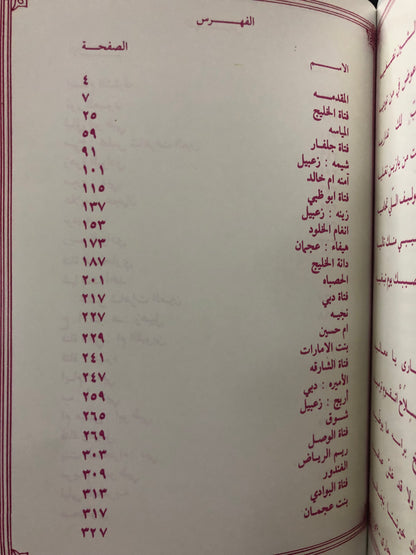 الفهرس
الاسم الصفحة
المقدمه ٤
فتاة الخليج ٧
المياسه ٢٥
فتاة جلفار ٥٩
شيمه : زعبيل ٩١
آمنه ام خالد ١٠١
فتاة ابو ظبي ١١٥
زينه : زعبيل ١٣٧
انغام الخلود ١٥٣
هيفاء : عجمان ١٧٣
دانة الخليج ١٨٧
الحصباه ٢٠١
فتاة دبي ٢١٧
نجيه ٢٢٧
ام حسين ٢٢٩
بنت الامارات ٢٤١
فتاة الشارقه ٢٤٧
الأميره : دبي ٢٥٩
أريج : زعبيل ٢٦٥
شوق ٢٦٩
فتاة الوصل ٣٠٣
ريم الرياض ٣٠٩
الغندور ٣١٣
فتاة البوادي ٣١٧
بنت عجمان ٣٢٧